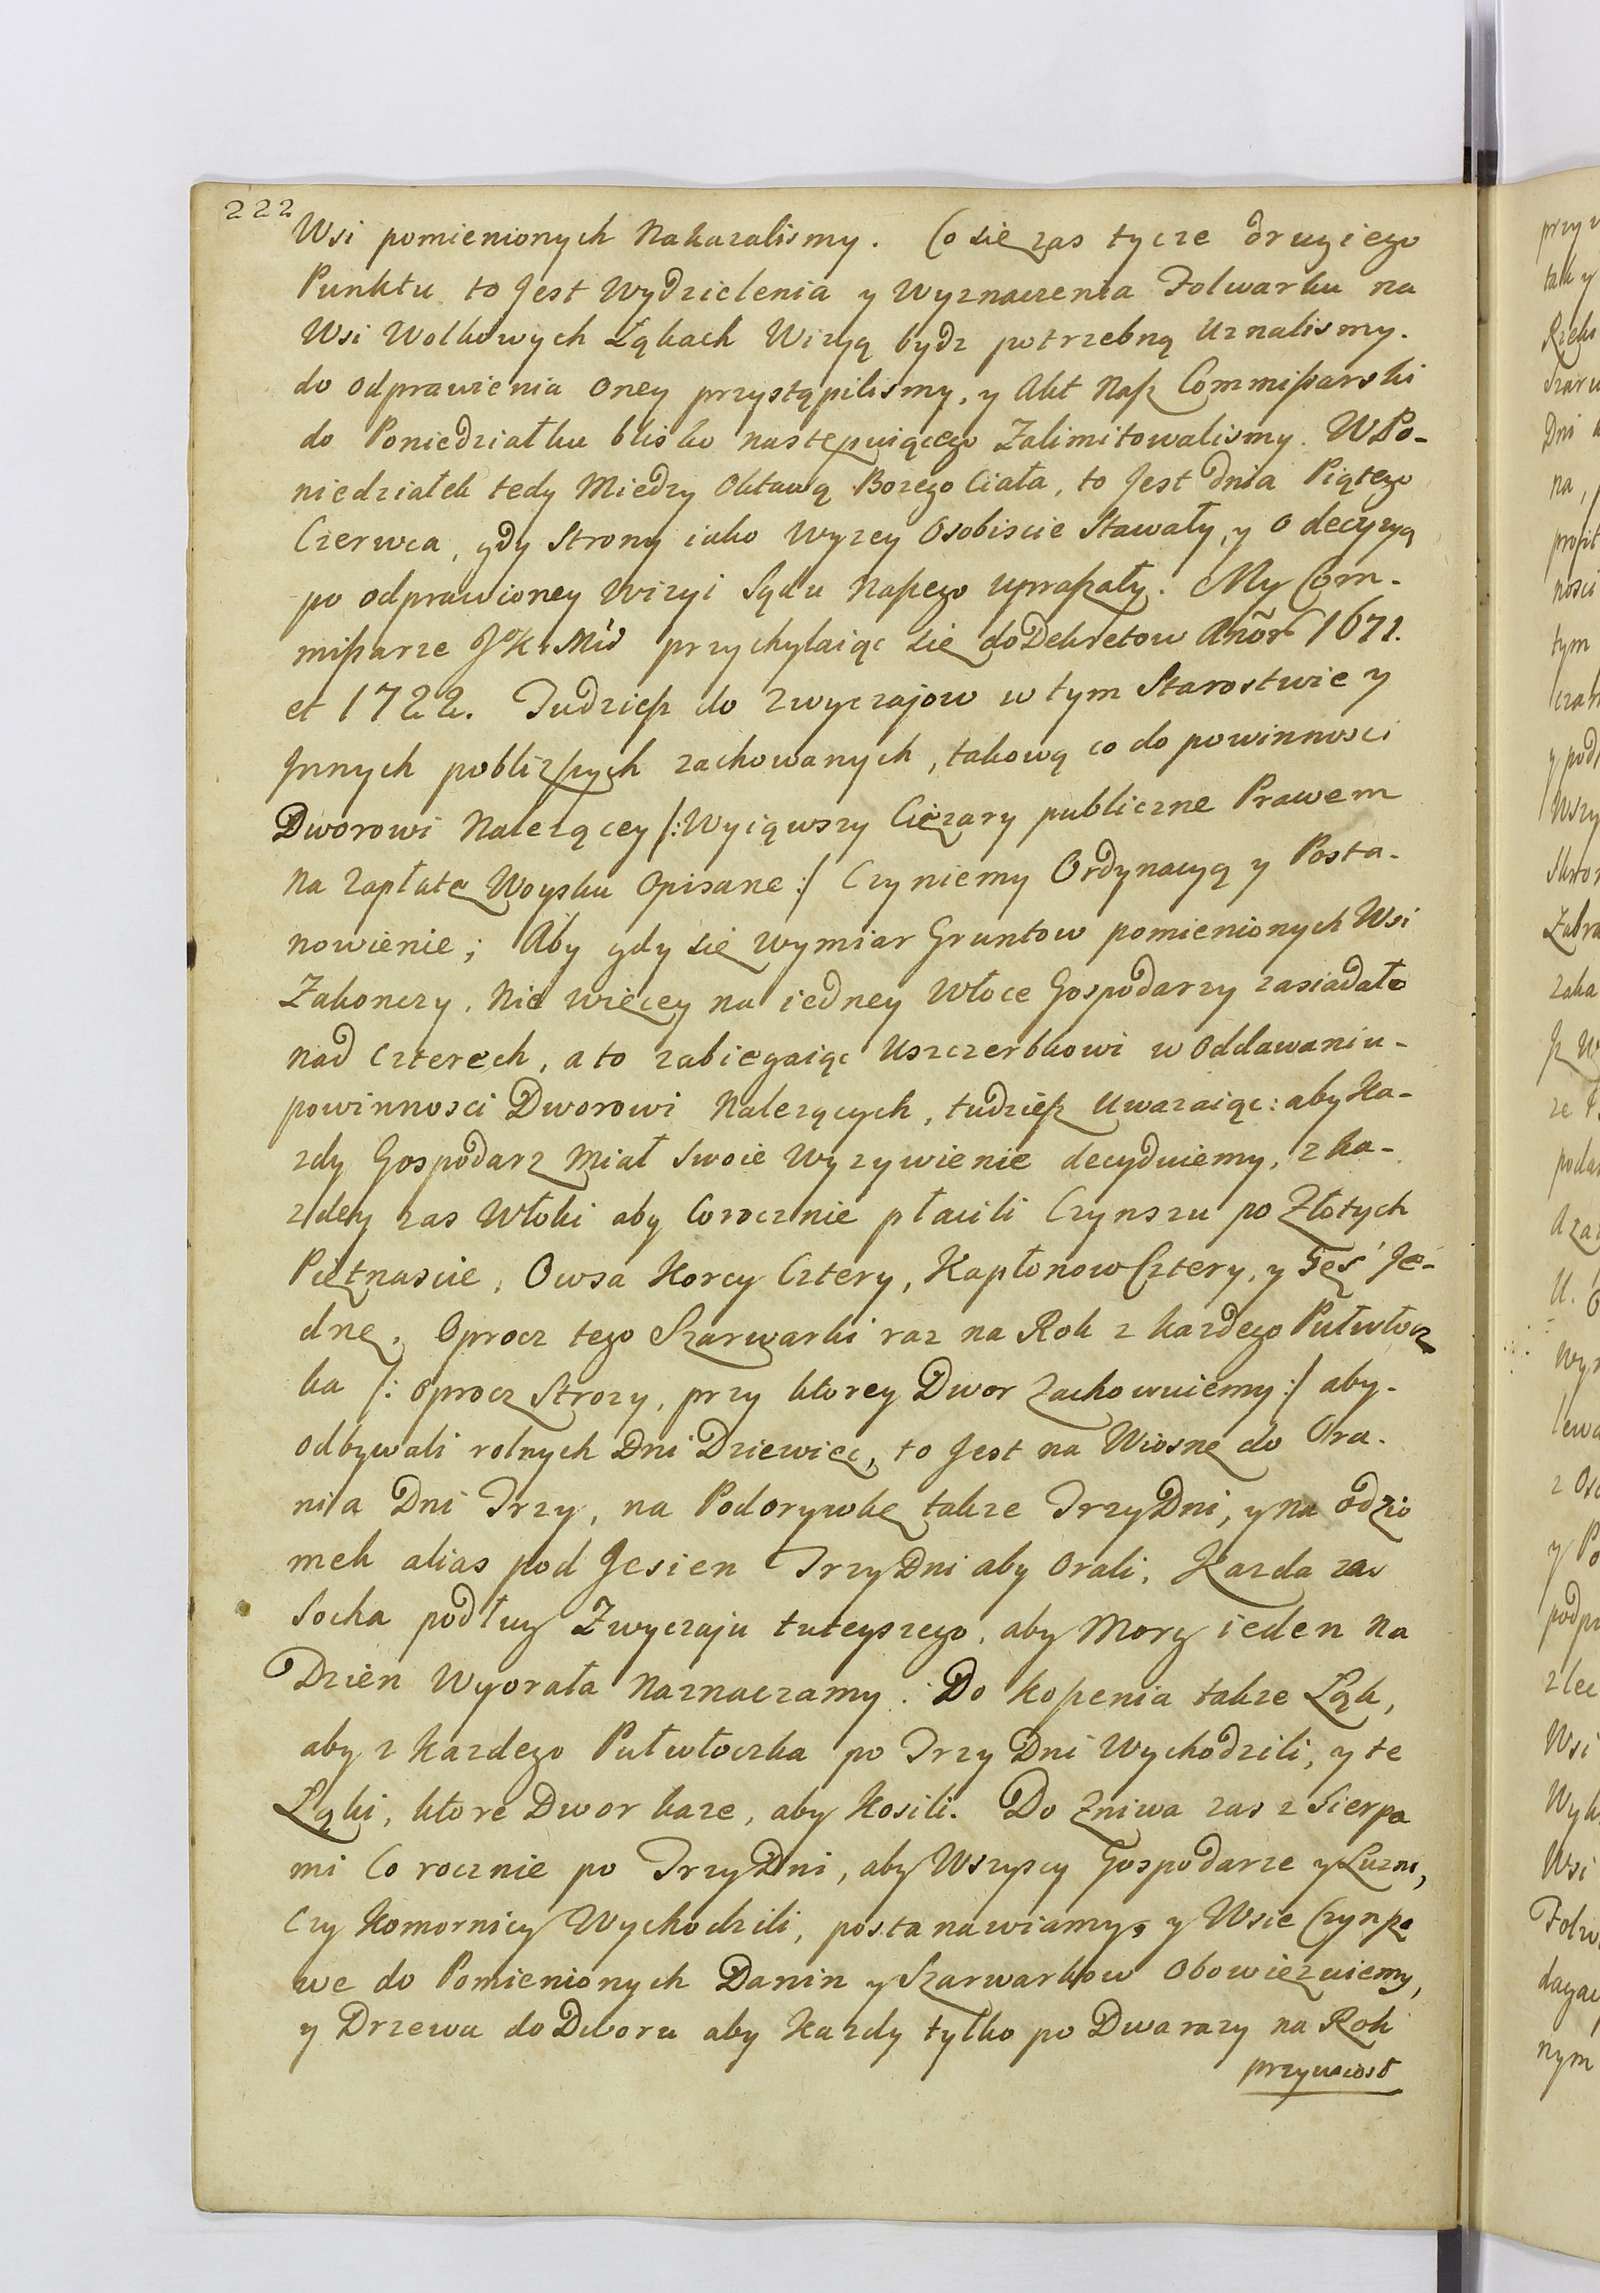 222
Wsi pomienionych Nakazalismy. Co się zas tycze drugiego
Punktu to Jest Wydzielenia y Wyznaczenia Folwarku na
Wsi Wolkowych Łąkach Wizyą bydz potrzebną Uznalismy.
do odprawienia Oney przystąpilismy, y Akt Nasz Commissarski
do Poniedziałku blisko następuiącego Zalimitowalismy. W Po-
niedziałek tedy Miedzy Oktawą Bozego Ciała, to Jest dnia Piątego
Czerwca, gdy Strony iako Wyzey Osobiscie Stawały, y o decyzyą
po odprawioney Wizyi Sądu Naszego upraszały. My Com-
missarze JKMci przychylaiąc się do Dekretow Anõr 1671.
et 1722. Tudziesz do Zwyczajow w tym Starostwie y
Innych poblizszych zachowanych, takową co do powinnosci
Dworowi Nalezącey /: Wyiąwszy Cięzary publiczne Prawem
na Zapłatę Woysku Opisane :/ Czyniemy Ordynacyą y Posta-
nowienie; Aby gdy się wymiar Gruntow pomienionych Wsi
Zakonczy, Nie więcey na iedney Włoce Gospodarzy zasiadało
nad Czterech, a to zabiegaiąc Uszczerbkowi w Oddawaniu-
powinnosci Dworowi Nalezących, tudziesz Uwazaiąc: aby Ka-
zdy Gospodarz Miał Swoie Wyzywienie decyduiemy, z ka-
zdey zas Włoki aby Corocznie płacili Czynszu po Złotych
Piętnascie, Owsa Korcy Cztery, Kapłonow Cztery, y Gęś Je-
dnę, Oprocz tego Szarwarki raz na Rok z kazdego Pułwłocz
ka /: oprocz Strozy, przy ktorey Dwor Zachowuiemy :/ aby-
odbywali rolnych Dni Dziewięc, to Jest na Wiosnę do Ora-
nia Dni Trzy, na Podorywkę takze Trzy Dni, y na odzio
mek alias pod Jesien Trzy Dni aby Orali, Kazda zas
Socha podług Zwyczaju tuteyszego, aby Morg ieden na
Dzien Wyorała Naznaczamy. Do koszenia takze Łąk,
aby z Kazdego Pułwłoczka po Trzy Dni Wychodzili, y te
Łąki, ktore Dwor kaze, aby Kosili. Do Zniwa zas z Sierpa
mi Co rocznie po Trzy Dni, aby Wszyscy Gospodarze y Luzni,
Czy Komornicy Wychodzili, postanawiamy, y Wsie Czynszo
we do Pomienionych Danin y Szarwarkow Obowięzuiemy,
y Drzewa do Dworu aby Kazdy tylko po Dwa razy na Rok
przywiosł